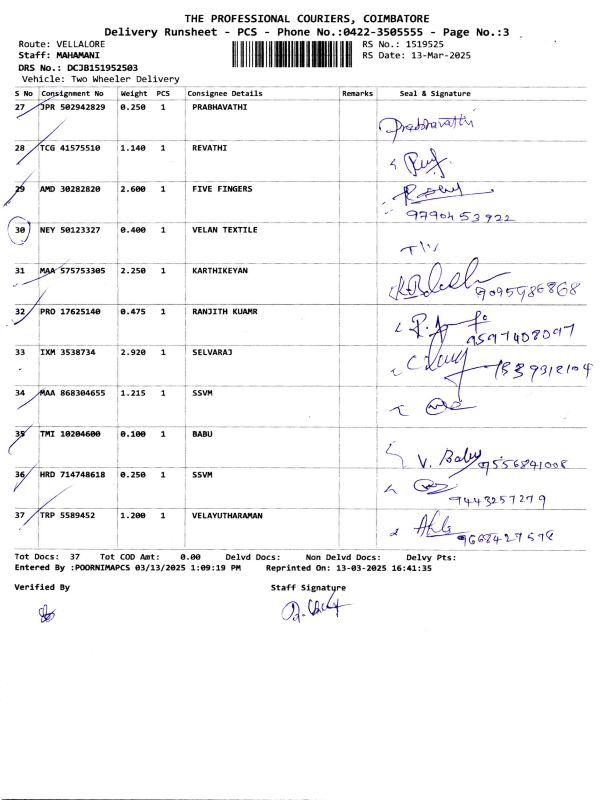 THE PROFESSIONAL COURIERS, COIMBATORE
Delivery Runsheet - PCS - Phone No.:0422-3505555 - Page No.:3
Route: VELLALORE RS No.: 1519525
Staff: MAHAMANI RS Date: 13-Mar-2025
DRS No.: DCJB151952503
Vehicle: Two Wheeler Delivery
S No Consignment No Weight PCS Consignee Details Remarks Seal & Signature
27 JPR 502942829 0.250 1 PRABHAVATHI Prabhavathi
28 TCG 41575510 1.140 1 REVATHI
29 AMD 30282820 2.600 1 FIVE FINGERS
9790453922
30 NEY 50123327 0.400 1 VELAN TEXTILE
31 MAA 575753305 2.250 1 KARTHIKEYAN
9095986868
32 PRO 17625140 0.475 1 RANJITH KUAMR
9597408097
33 IXM 3538734 2.920 1 SELVARAJ
34 MAA 868304655 1.215 1 SSVM
35 TMI 10204600 0.100 1 BABU
V. Babu 9556841008
36 HRD 714748618 0.250 1 SSVM
9443257279
37 TRP 5589452 1.200 1 VELAYUTHARAMAN
Tot Docs: 37 Tot COD Amt: 0.00 Delvd Docs: Non Delvd Docs: Delvy Pts:
Entered By :POORNIMAPCS 03/13/2025 1:09:19 PM Reprinted On: 13-03-2025 16:41:35
Verified By Staff Signature